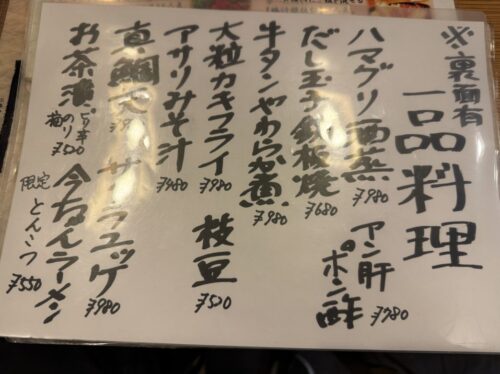 ※裏面有
一品料理
ハマグリ酒蒸 ¥980
アン肝ポン酢 ¥780
だし玉子鉄板焼 ¥680
牛タンやわらか煮 ¥980
大粒カキフライ ¥980
枝豆 ¥500
アサリみそ汁 ¥480
真鯛
ユッケ ¥980
お茶漬 のり 梅 ¥500
今なんラーメン
限定 とんこつ ¥550